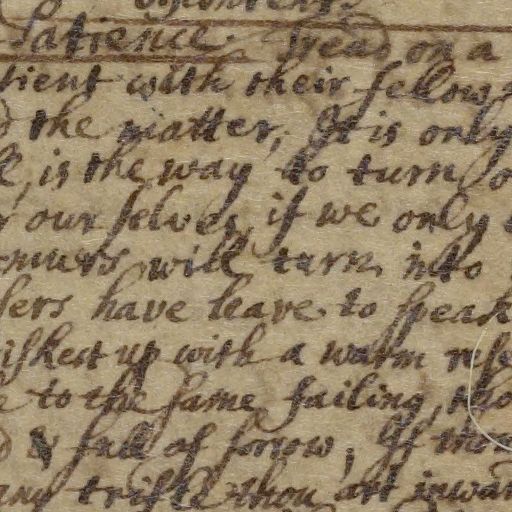 Patience. Read on a
tient with their fellow
the matter, It is only
is the way to turn
our selves, if we only
murs will turn into
sers have leave to speak
up with a warm rese
to the same failing, tho
& full of sorow; If
any trifle thou art inwar